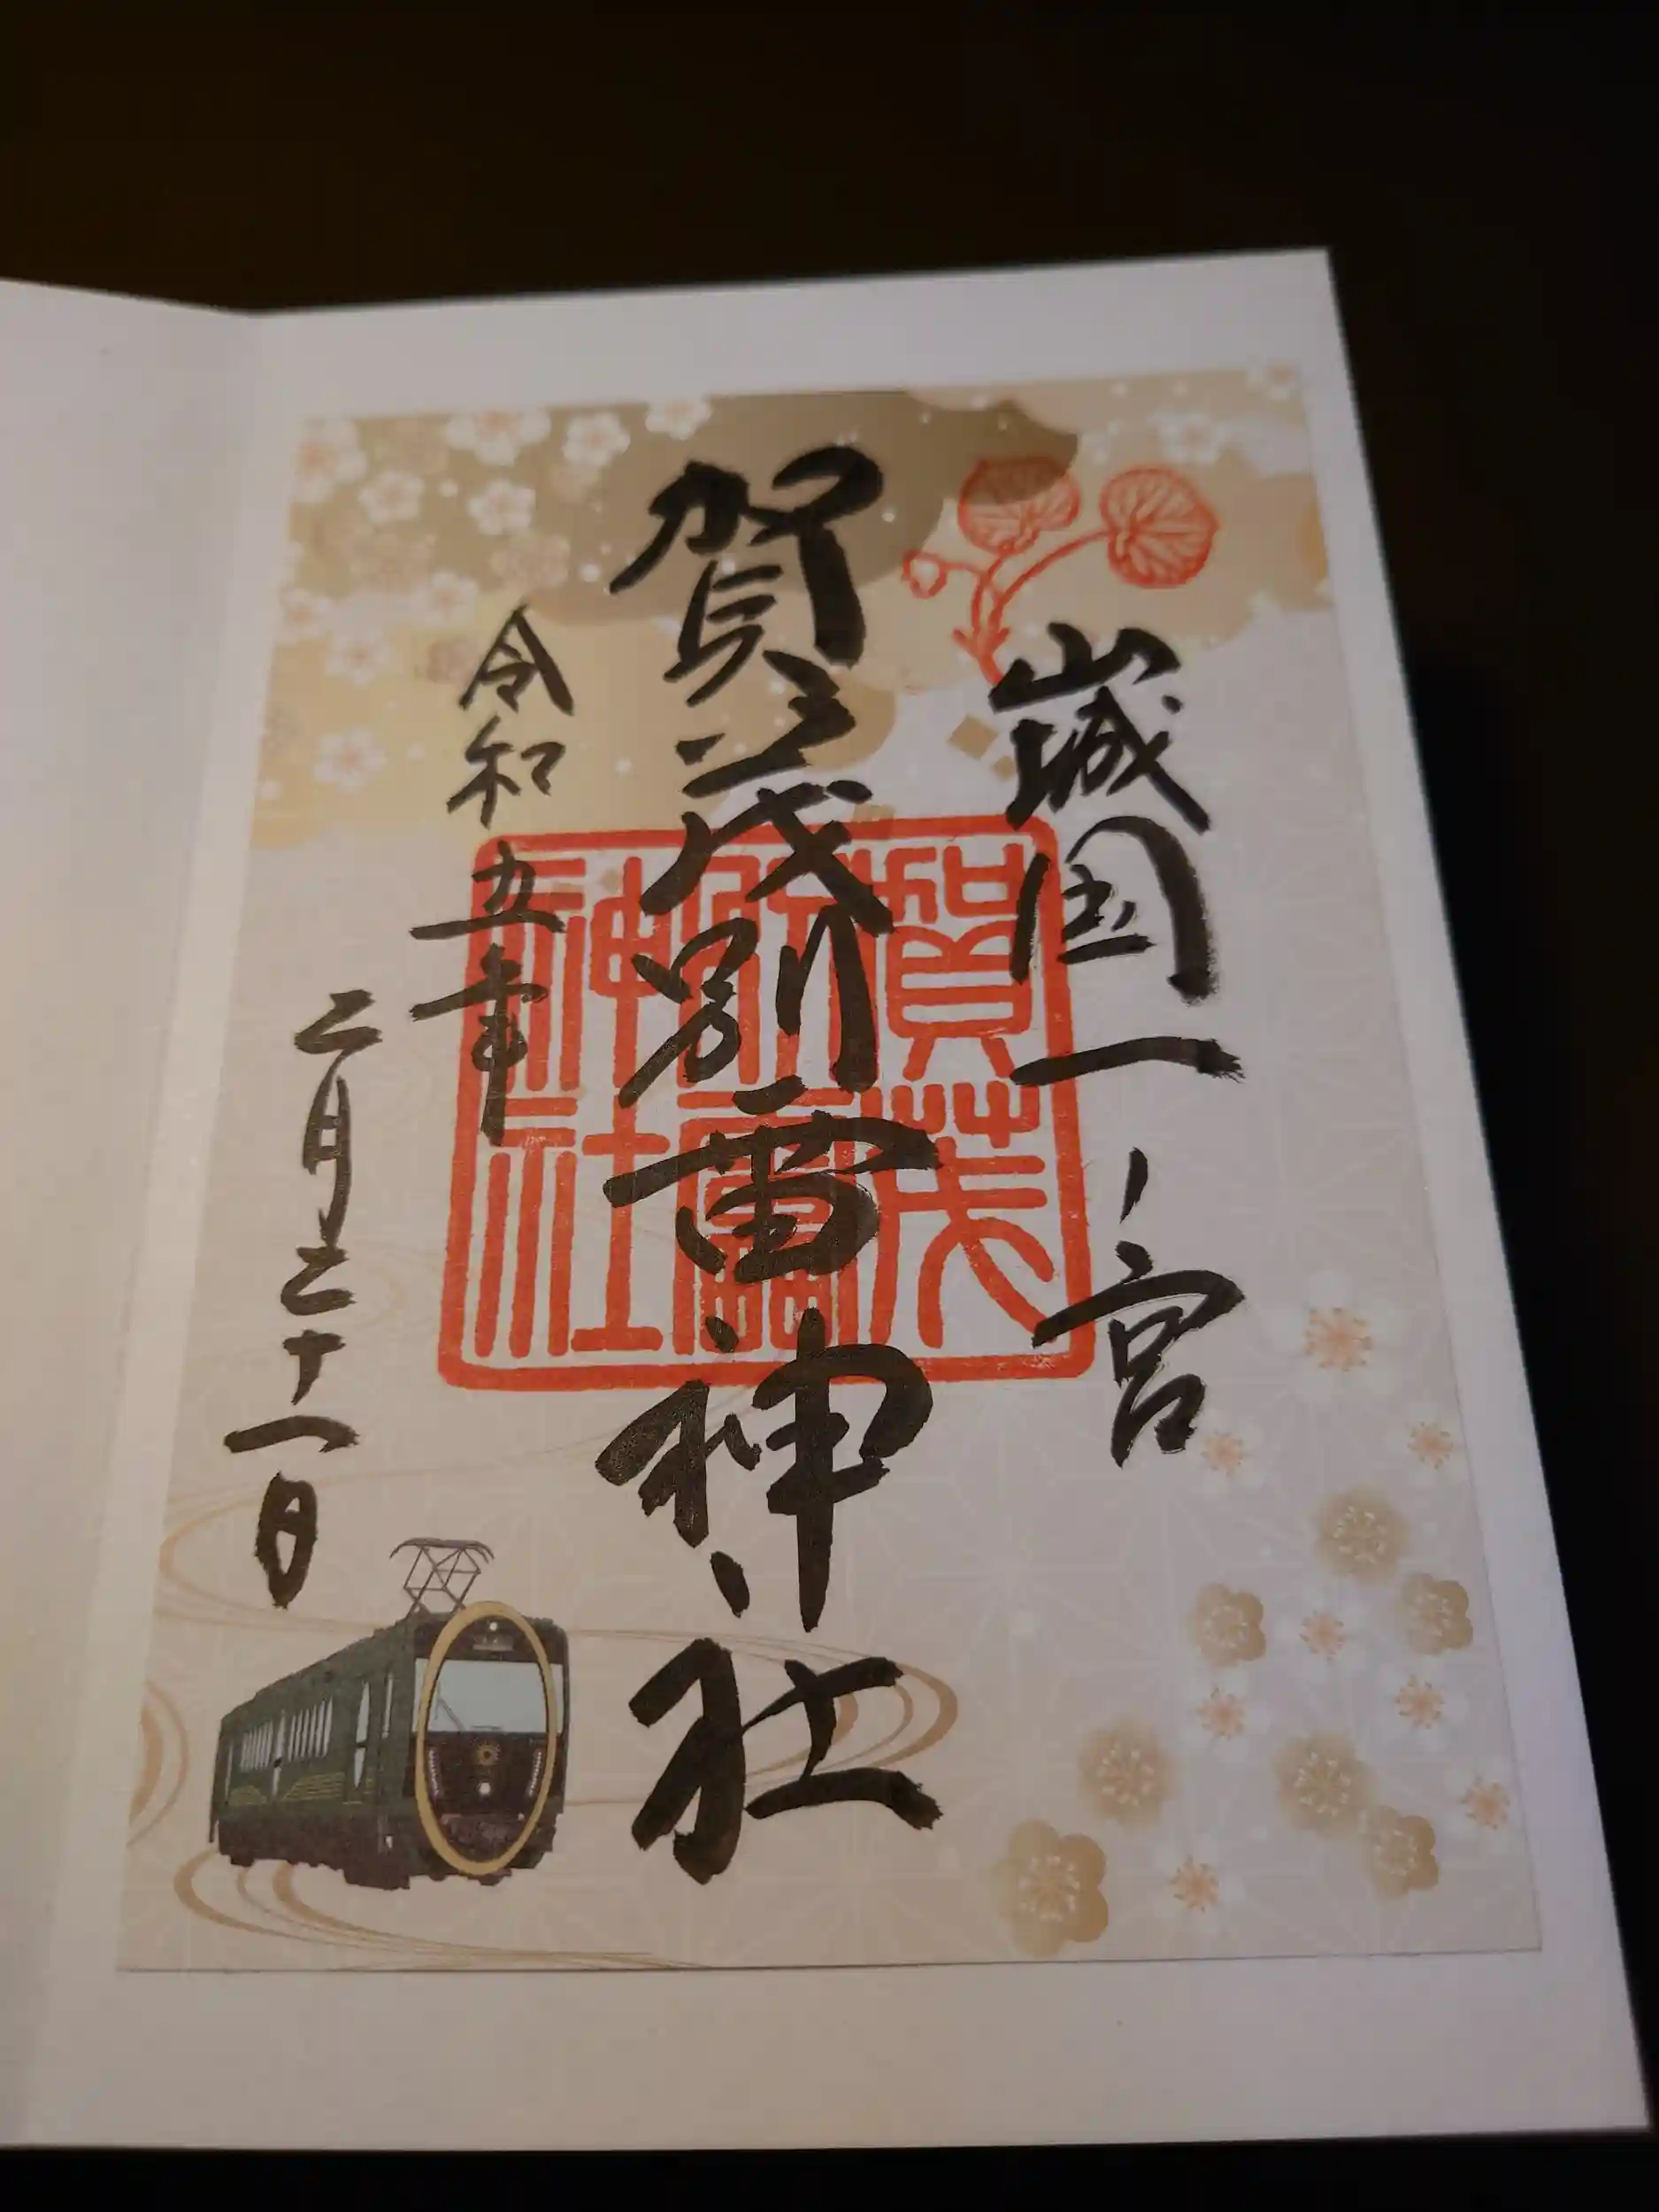 山城国一ノ宮
賀茂別雷神社
令和五年
二月二十一日
賀茂
別雷
神社